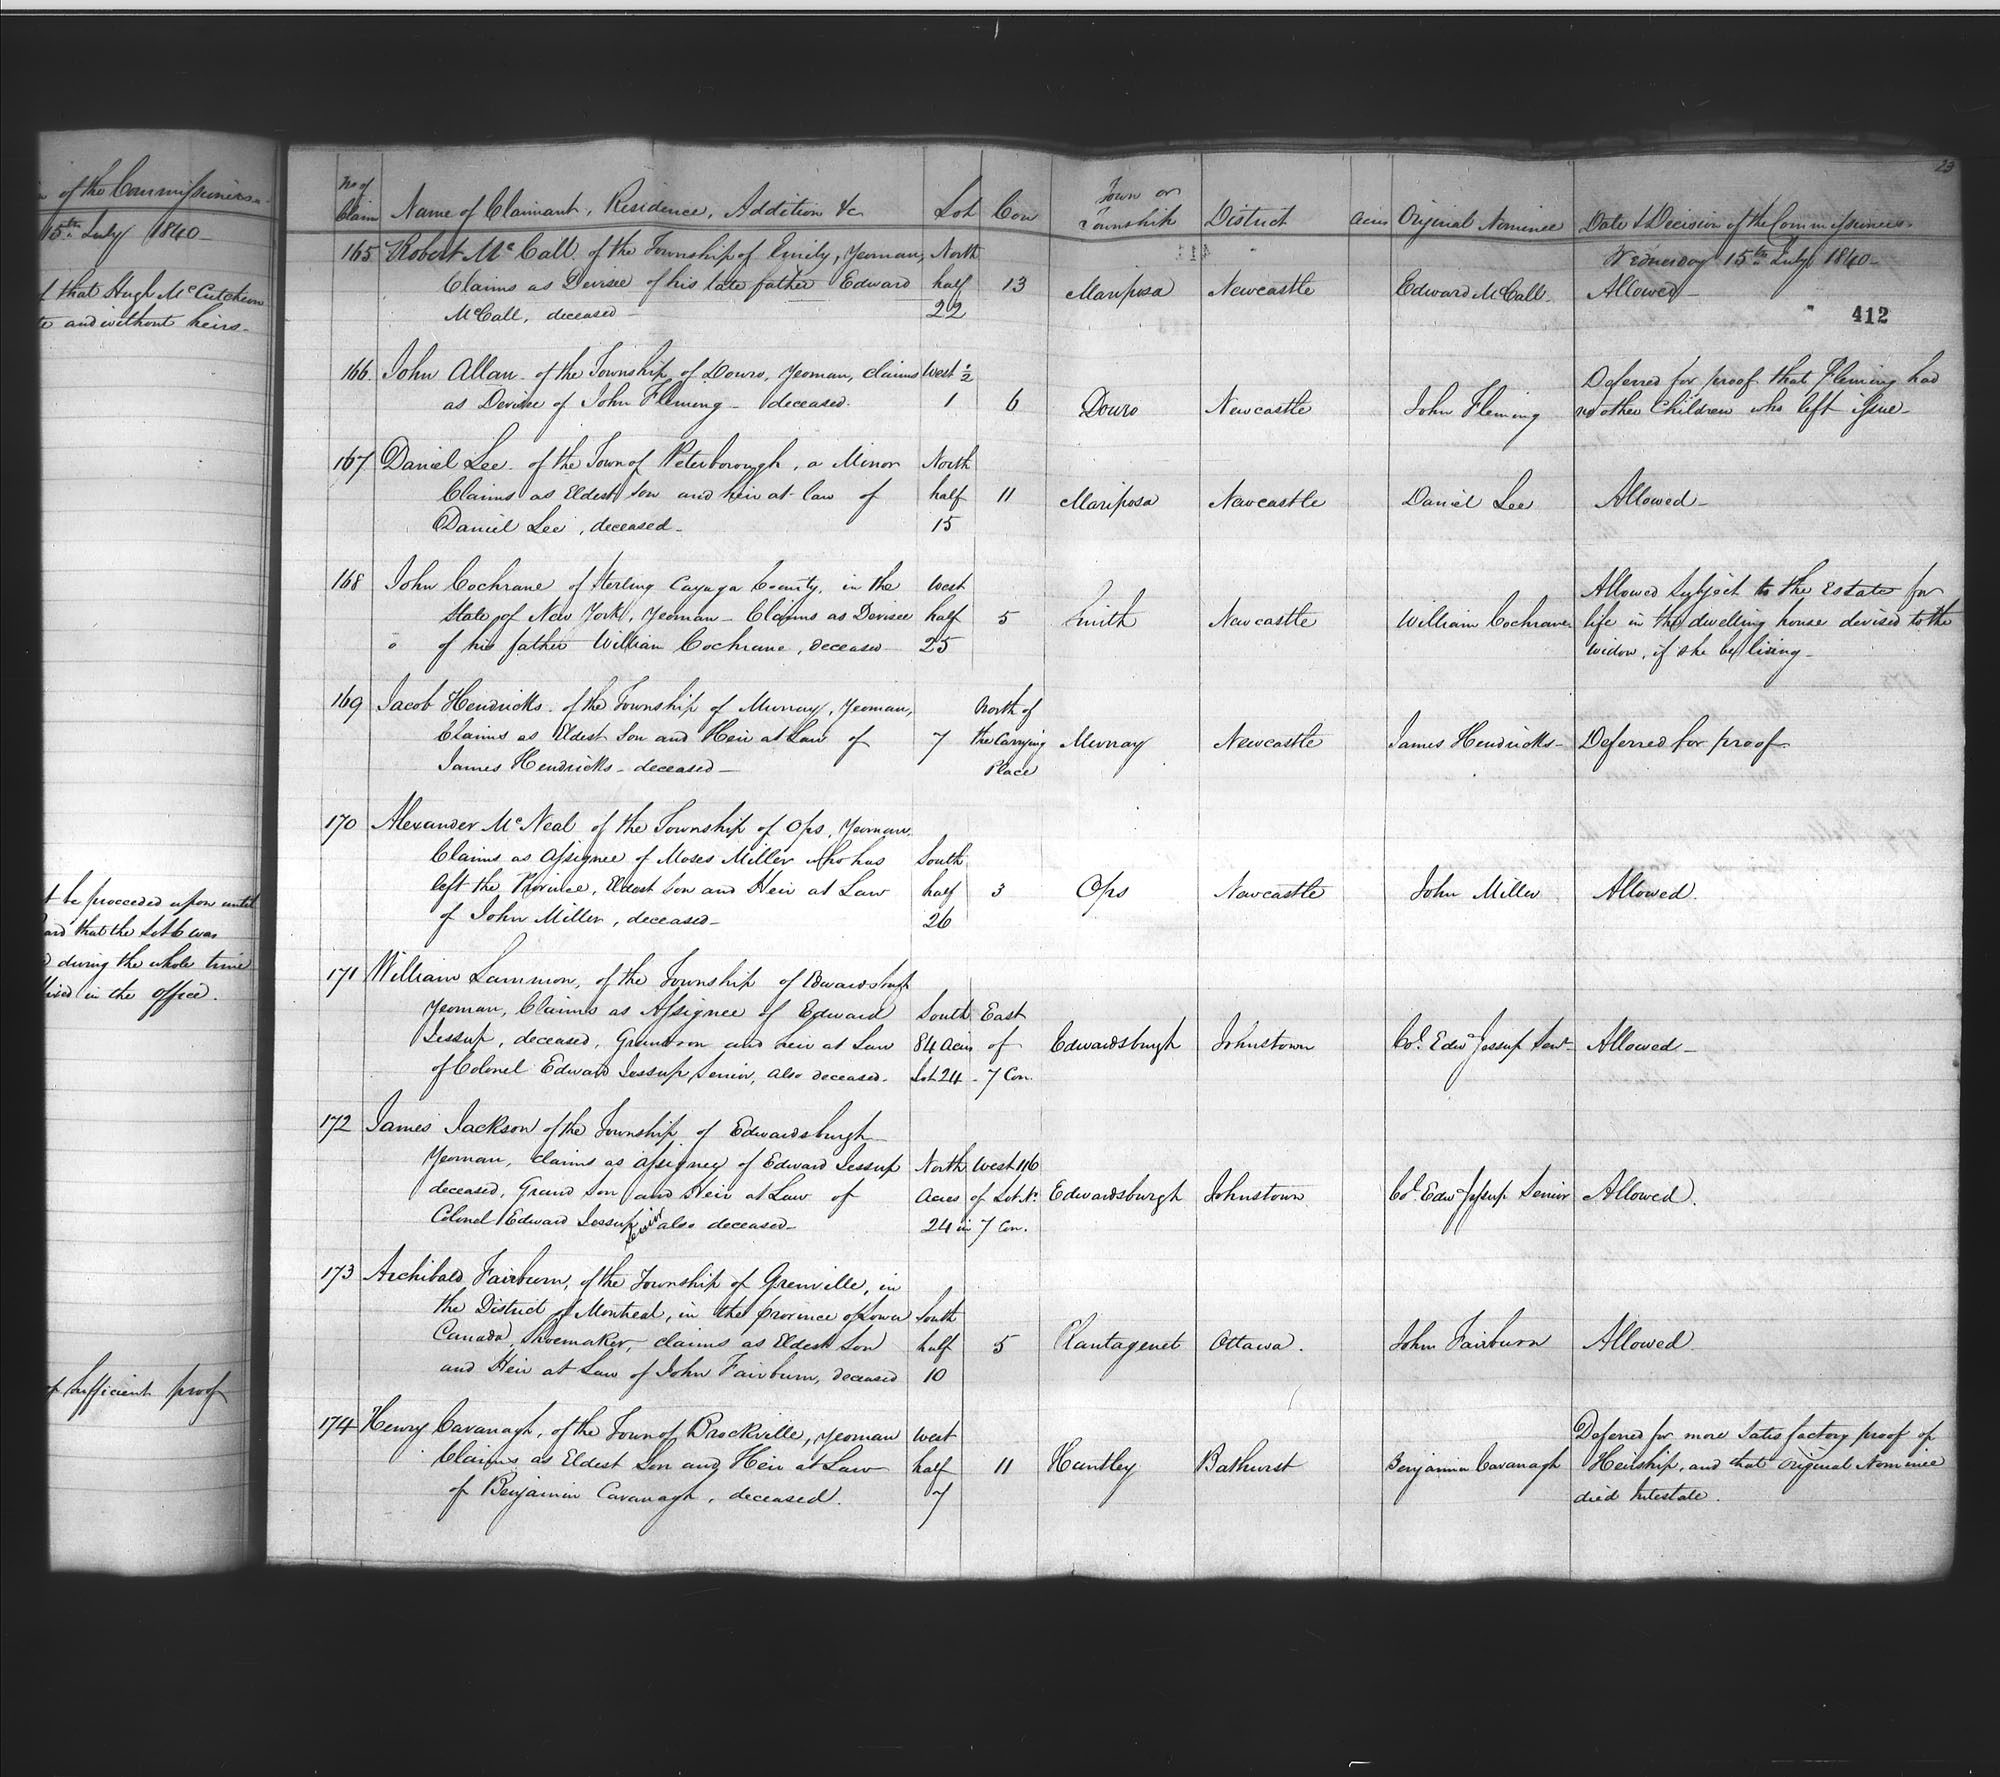 of the Commissioners.
15th July 1840
that Hugh McCutcheon
and without heirs.
t be proceeded upon until
and that the Lot 6 was
during the whole time
in the office.
of Sufficient proof
23
No of Claim
Name of Claimant, Residence, Addition &c
Lot
Con
Town or Township
District
Acres
Original Nominee
Date & Decision of the Commissioners.
Wednesday 15th July 1840
412
165 Robert McCall of the Township of Emily, Yeoman, North
Claims as Devisee of his late father Edward half 13 Mariposa Newcastle Edward McCall Allowed
McCall, deceased 22
166 John Allan of the Township of Douro, Yeoman, claims West ½ Deferred for proof that Fleming had
as Devisee of John Fleming deceased. 1 6 Douro Newcastle John Fleming no other Children who left issue
167 Daniel Lee of the Town of Peterborough, a Minor North
Claims as Eldest Son and heir at law of half 11 Mariposa Newcastle Daniel Lee Allowed
Daniel Lee, deceased 15
168 John Cochrane of Sterling Cayuga County, in the West Allowed Subject to the Estate for
State of New York, Yeoman Claims as Devisee half 5 Smith Newcastle William Cochrane life in the dwelling house devised to the
of his father William Cochrane, deceased 25 widow, if she be living
169 Jacob Hendricks of the Township of Murray, Yeoman, North of
Claims as Eldest Son and Heir at Law of 7 the Carrying Murray Newcastle James Hendricks Deferred for proof
James Hendricks deceased Place
170 Alexander McNeal of the Township of Ops, Yeoman
Claims as Assignee of Moses Miller who has South
left the Province, Eldest Son and Heir at Law half 3 Ops Newcastle John Miller Allowed.
of John Miller, deceased 26
171 William Lammon, of the Township of Edwardsburgh
Yeoman, Claims as Assignee of Edward South East
Jessup, deceased, Grandson and heir at Law 84 Acres of Edwardsburgh Johnstown Col. Edwd Jessup Senr Allowed
of Colonel Edward Jessup Senior, also deceased. Lot 24 7 Con.
172 James Jackson of the Township of Edwardsburgh
Yeoman, claims as assignee of Edward Jessup North West 116
deceased, Grand Son and Heir at Law of Acres of Lot No Edwardsburgh Johnstown Col. Edwd Jessup Senior Allowed.
Colonel Edward Jessup Senior also deceased 24 in 7 Con.
173 Archibald Fairburn, of the Township of Grenville, in
the District of Montreal, in the province of Lower South
Canada, Shoemaker, claims as Eldest Son half 5 Plantagenet Ottawa. John Fairburn Allowed
and Heir at Law of John Fairburn, deceased 10
174 Henry Cavanagh, of the Town of Brockville, yeoman West Deferred for more satisfactory proof of
Claims as Eldest Son and Heir at Law half 11 Huntley Bathurst Benjamin Cavanagh Heirship, and that original Nominee
of Benjamin Cavanagh, deceased. 7 died intestate.